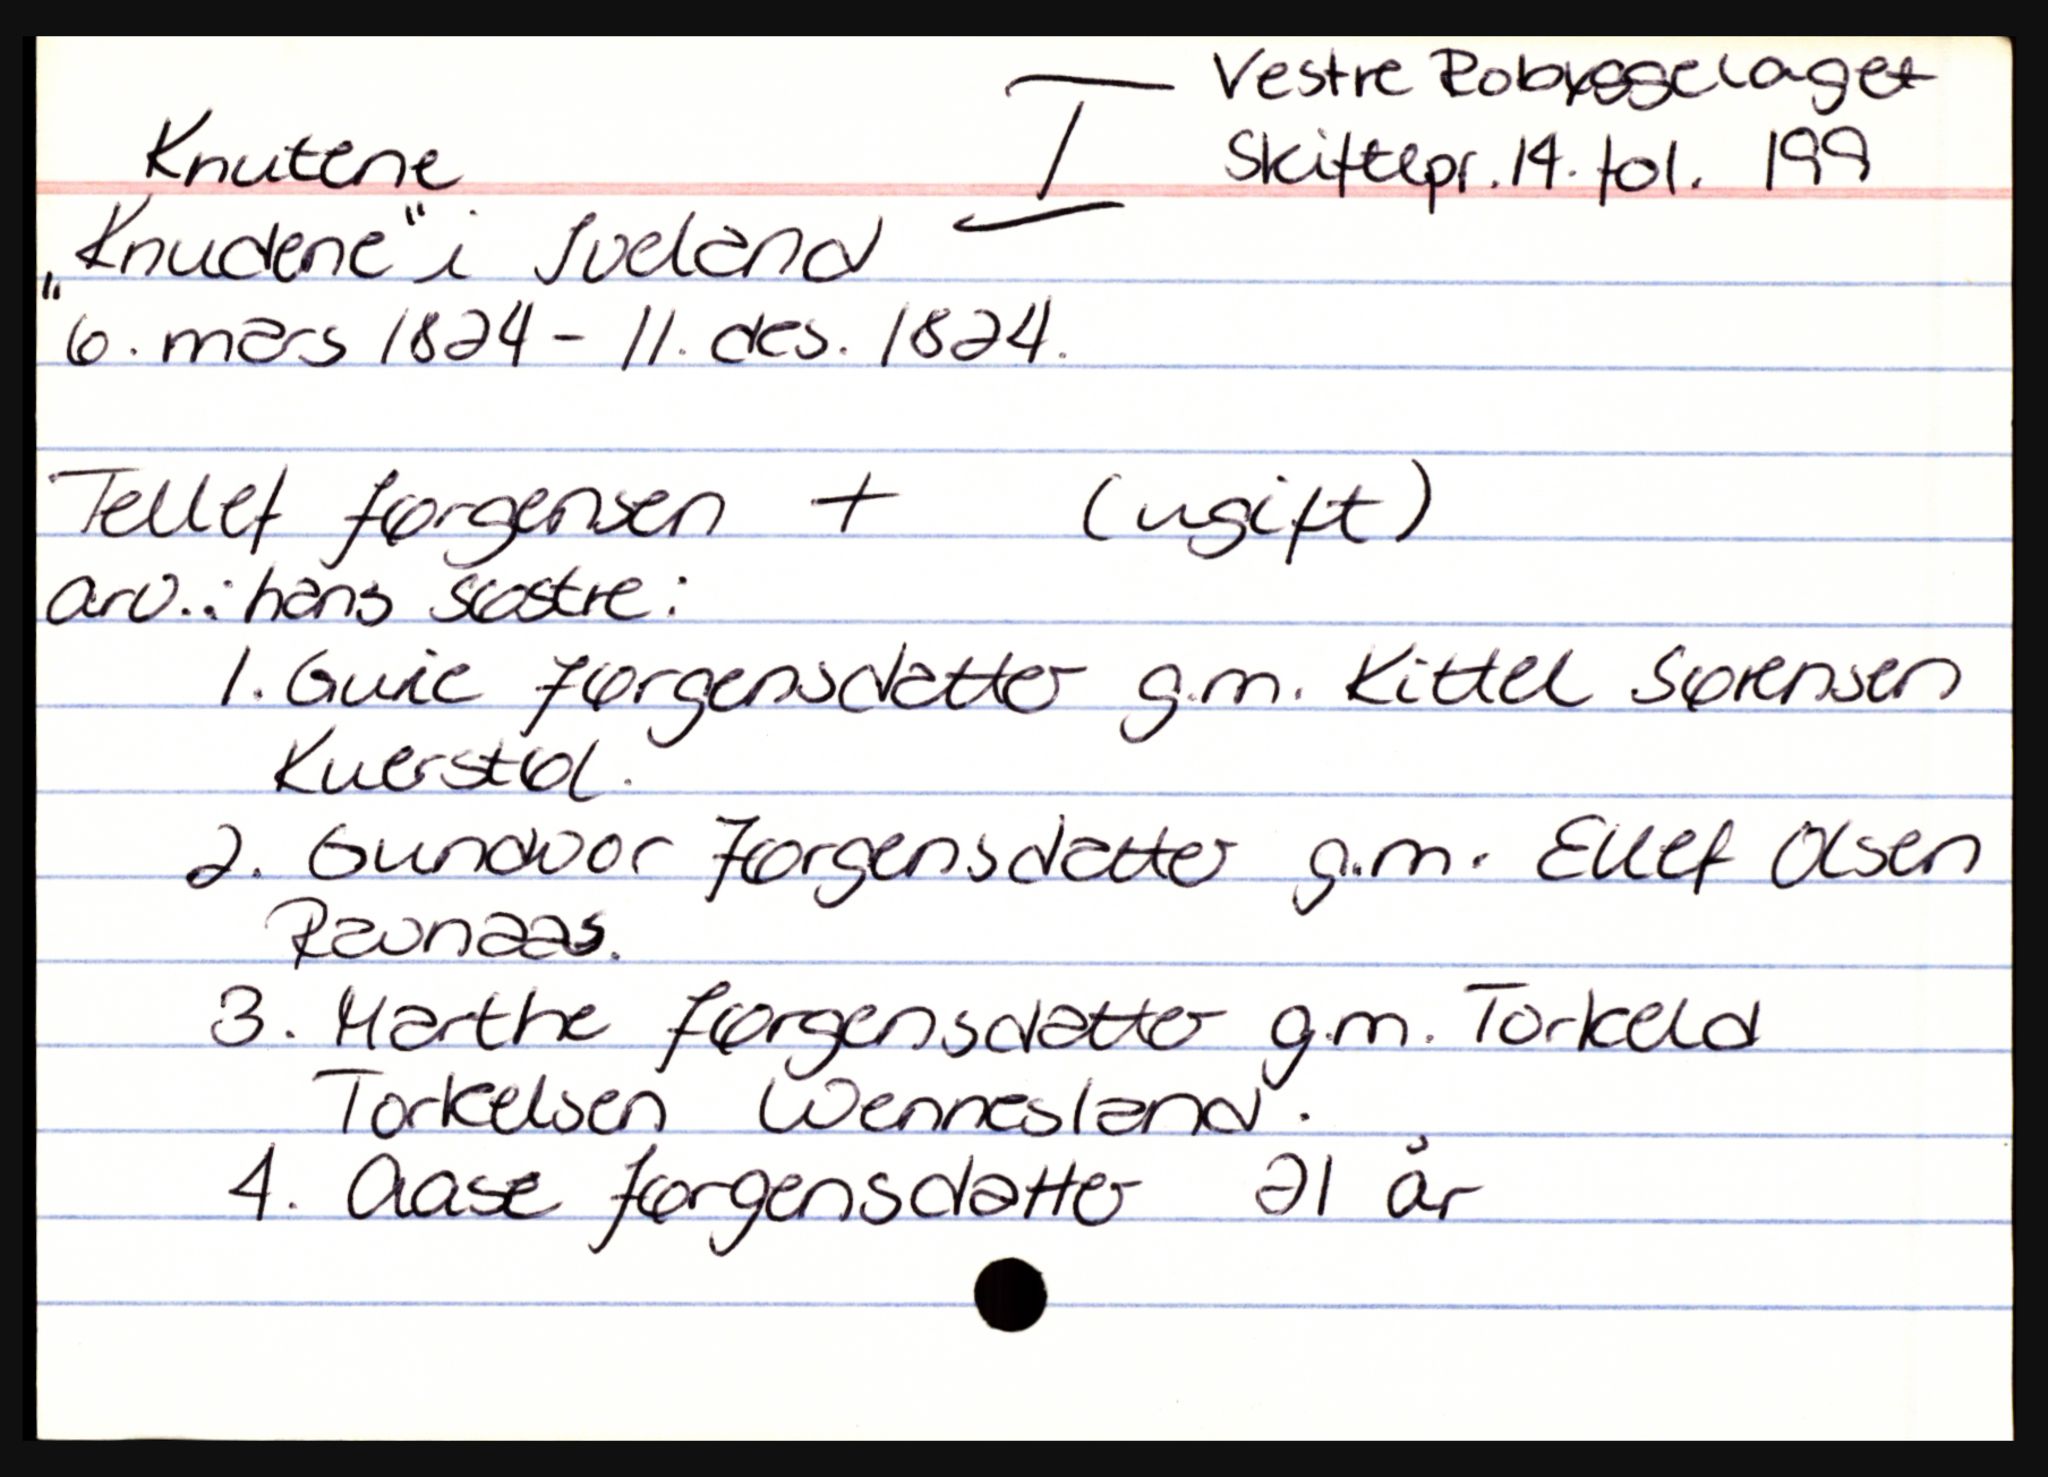 Vestre Robyggelaget
Knutene I Skiftepr. 14. fol. 199
"Knudene" i Iveland
6. mars 1824 - 11. des. 1824.
Tellef Jørgensen + (ugift)
arv.: hans søstre:
1. Guie Jørgensdatter g.m. Kittel Sørensen
Kuerstøl.
2. Gundvor Jørgensdatter g.m. Ellef Olsen
Ravnaas.
3. Marthe Jørgensdatter g.m. Torkeld
Torkelsen Wennesland.
4. Aase Jørgensdatter 21 år